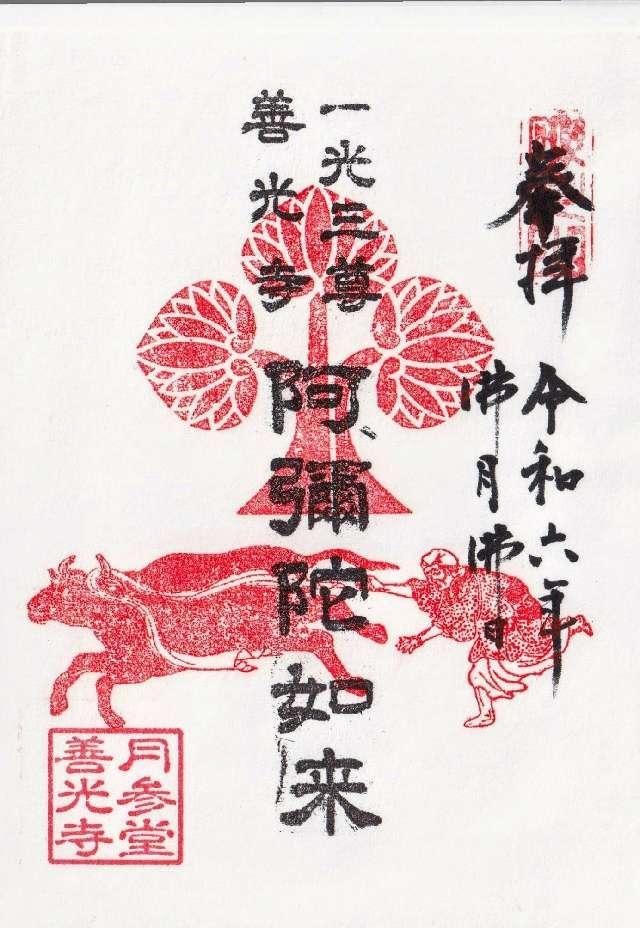 奉拝
令和六年
佛月佛日
一光三尊
善光寺
阿彌陀如来
月参堂
善光寺